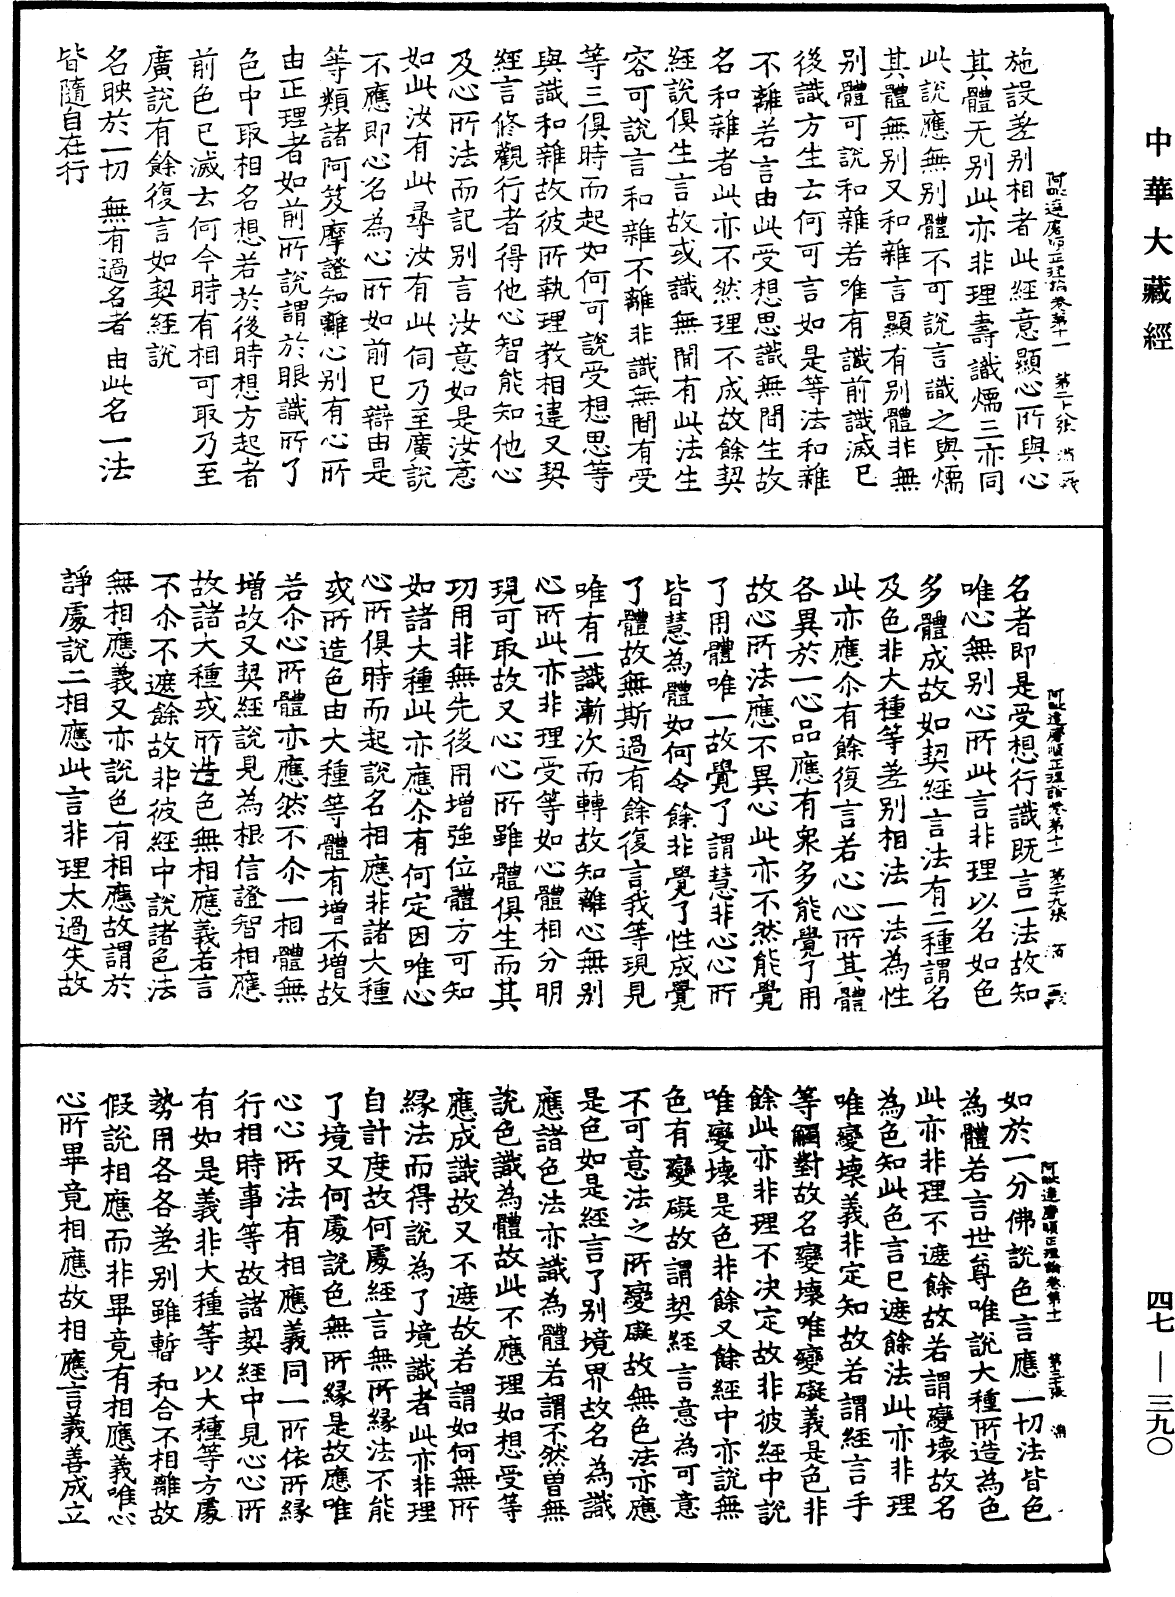 中華大藏經
施設差別相者此經意顯心所與心
其體无別此亦非理壽識煗三亦同
此說應無別體不可說言識之與煗
其體無別又和雜言顯有別體非無
別體可說和雜若唯有識前識滅已
後識方生去何可言如是等法和雜
不離若言由此受想思識無間生故
名和雜者此亦不然理不成故餘契
經說俱生言故或識無間有此法生
容可說言和雜不離非識無間有受
等三俱時而起如何可說受想思等
與識和雜故彼所執理教相違又契
經言修觀行者得他心智能知他心
及心所法而記別言汝意如是汝意
如此汝有此尋汝有此伺乃至廣說
不應即心名為心所如前已辯由是
等類諸阿笈摩證知離心別有心所
由正理者如前所說謂於眼識所了
色中取相名想若於後時想方起者
前色已滅去何今時有相可取乃至
廣說有餘復言如契經說
名映於一切 無有過名者 由此名一法
皆隨自在行
阿毗達磨順正理論卷第十一 第二十八張
名者即是受想行識既言一法故知
唯心無別心所此言非理以名如色
多體成故如契經言法有二種謂名
及色非大種等差別相法一法為性
此亦應尒有餘復言若心心所其體
各異於一心品應有衆多能覺了用
故心所法應不異心此亦不然能覺
了用體唯一故覺了謂慧非心心所
皆慧為體如何令餘非覺了性成覺
了體故無斯過有餘復言我等現見
唯有一識漸次而轉故知離心無別
心所此亦非理受等如心體相分明
現可取故又心心所雖體俱生而其
功用非無先後用增強位體方可知
如諸大種此亦應尒有何定因唯心
心所俱時而起說名相應非諸大種
或所造色由大種等體有增不增故
若尒心所體亦應然不尒一相體無
增故又契經說見為根信證智相應
故諸大種或所造色無相應義若言
不尒不遮餘故非彼經中說諸色法
無相應義又亦說色有相應故謂於
諍處說二相應此言非理太過失故
阿毗達磨順正理論卷第十一 第二十九張
如於一分佛說色言應一切法皆色
為體若言世尊唯說大種所造為色
此亦非理不遮餘故若謂變壞故名
為色知此色言已遮餘法此亦非理
唯變壞義非定知故若謂經言手
等觸對故名變壞唯變礙義是色非
餘此亦非理不决定故非彼經中說
唯變壞是色非餘又餘經中亦說無
色有變礙故謂契經言意為可意
不可意法之所變礙故無色法亦應
是色如是經言了別境界故名為識
應諸色法亦識為體若謂不然曾無
說色識為體故此不應理如想受等
應成識故又不遮故若謂如何無所
緣法而得說為了境識者此亦非理
自計度故何處經言無所緣法不能
了境又何處說色無所緣是故應唯
心心所法有相應義同一所依所緣
行相時事等故諸契經中見心心所
有如是義非大種等以大種等方處
勢用各各差別雖暫和合不相離故
假說相應而非畢竟有相應義唯心
心所畢竟相應故相應言義善成立
阿毗達磨順正理論卷第十一 第三十張
四七—三九〇